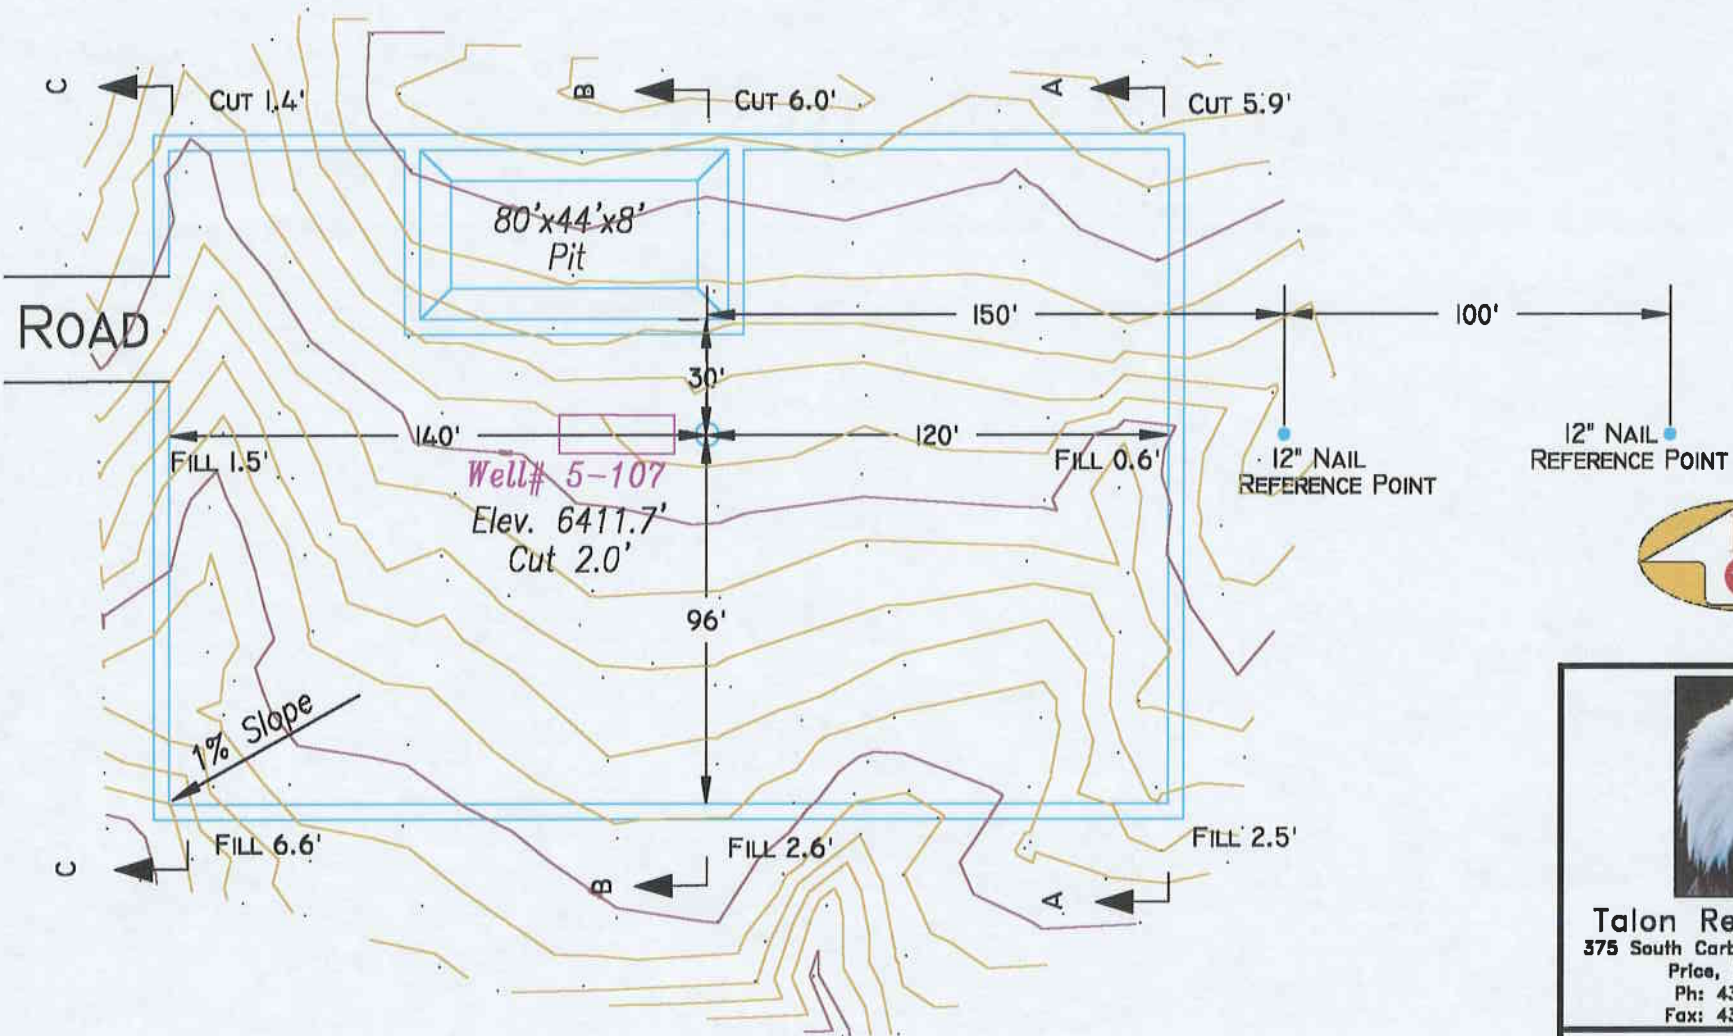 C
CUT 1.4'
B
CUT 6.0'
A
CUT 5.9'
80'x44'x8'
Pit
ROAD
150'
100'
30'
140'
120'
FILL 1.5'
Well# 5-107
FILL 0.6'
12" NAIL
REFERENCE POINT
12" NAIL
REFERENCE POINT
Elev. 6411.7'
Cut 2.0'
96'
1% Slope
C
FILL 6.6'
B
FILL 2.6'
A
FILL 2.5'
Talon
375 South
Price,
Ph:
Fax: